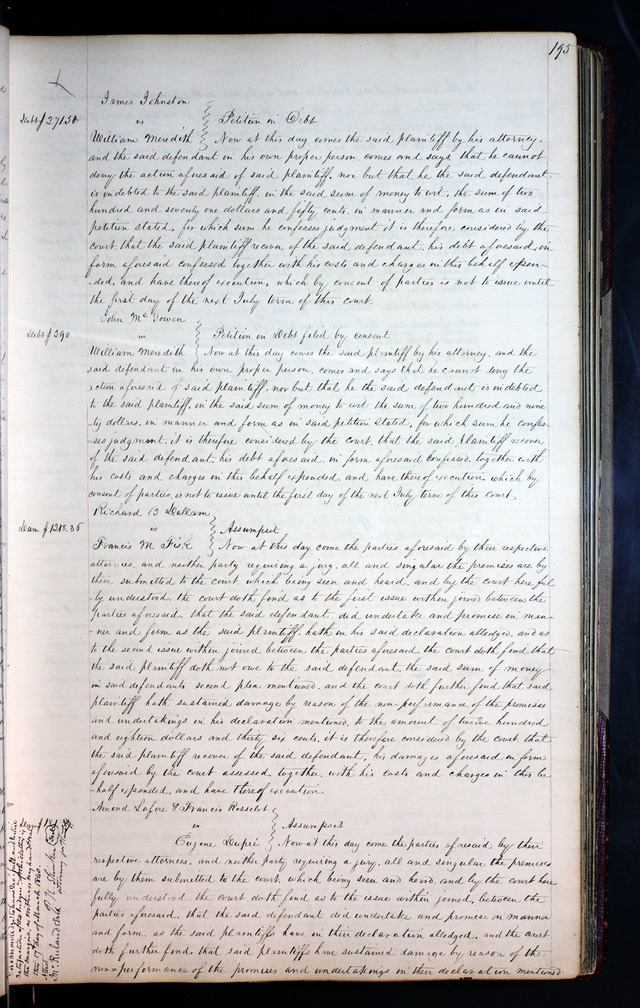 195
James Johnston
vs } Petition in Debt
Debt $271.50
William Meredith } Now at this day comes the said plaintiff by his attorney,
and the said defendant in his own proper person comes and says, that he cannot
deny the action aforesaid of said plaintiff, nor but that he the said defendant
is indebted to the said plaintiff, in the said sum of money to wit, the sum of two
hundred and seventy one dollars and fifty cents, in manner and form as in said
petition stated, for which sum he confesses judgment it is therefore considered by the
court that the said plaintiff recover of the said defendant, his debt aforesaid, in
form aforesaid confessed together with his costs and charges in this behalf expen-
ded, and have thereof execution, which by consent of parties is not to issue until
the first day of the next July term of this court.
John McGowen
vs } Petition in Debt filed by consent
Debt $290
William Meredith } Now at this day comes the said plaintiff by his attorney, and the
said defendant in his own proper person, comes and says that he cannot deny the
action aforesaid of said plaintiff, nor but that he the said defendant is indebted
to the said plaintiff, in the said sum of money to wit the sum of two hundred and nine-
ty dollars, in manner and form as in said petition stated, for which sum he confes-
ses judgment, it is therefore considered by the court, that the said plaintiff recover
of the said defendant, his debt aforesaid, in form aforesaid confessed, together with
his costs and charges in this behalf expended, and have thereof execution, which by
consent of parties, is not to issue until the first day of the next July term of this court.
Richard B Dallam
vs } Assumpsit
Dam $1218.36
Francis M Fisk } Now at this day come the parties aforesaid by their respective
attornies, and neither party requiring a jury, all and singular the premises are by
them submitted to the court, which being seen and heard, and by the court here ful-
ly understood, the court doth find as to the first issue within joined between the
parties aforesaid, that the said defendant did undertake and promise in man-
ner and form as the said plaintiff, hath in his said declaration alledged, and as
to the second issue within joined between the parties aforesaid the court doth find that
the said plaintiff doth not owe to the said defendant, the said sum of money
in said defendants second plea mentioned, and the court doth further find that said
plaintiff hath sustained damage by reason of the non-performance of the promises
and undertakings in his declaration mentioned, to the amount of twelve hundred
and eighteen dollars and thirty six cents, it is therefore considered by the court that
the said plaintiff recover of the said defendant, his damages aforesaid in form
aforesaid by the court assessed, together with his costs and charges in this be-
half expended, and have thereof execution.
Amond Lafore & Francis Rosselot
vs } Assumpsit
Eugene Dupré } Now at this day come the parties aforesaid by their
respective attornies, and neither party requiring a jury, all and singular the premises
are by them submitted to the court, which being seen and heard, and by the court here
fully understood, the court doth find as to the issue within joined, between the
parties aforesaid, that the said defendant did undertake and promise in manner
and form, as the said plaintiffs have in their declaration alledged, and the court
doth further find, that said plaintiffs have sustained damage by reason of the
non-performance of the promises and undertakings in their declaration mentioned